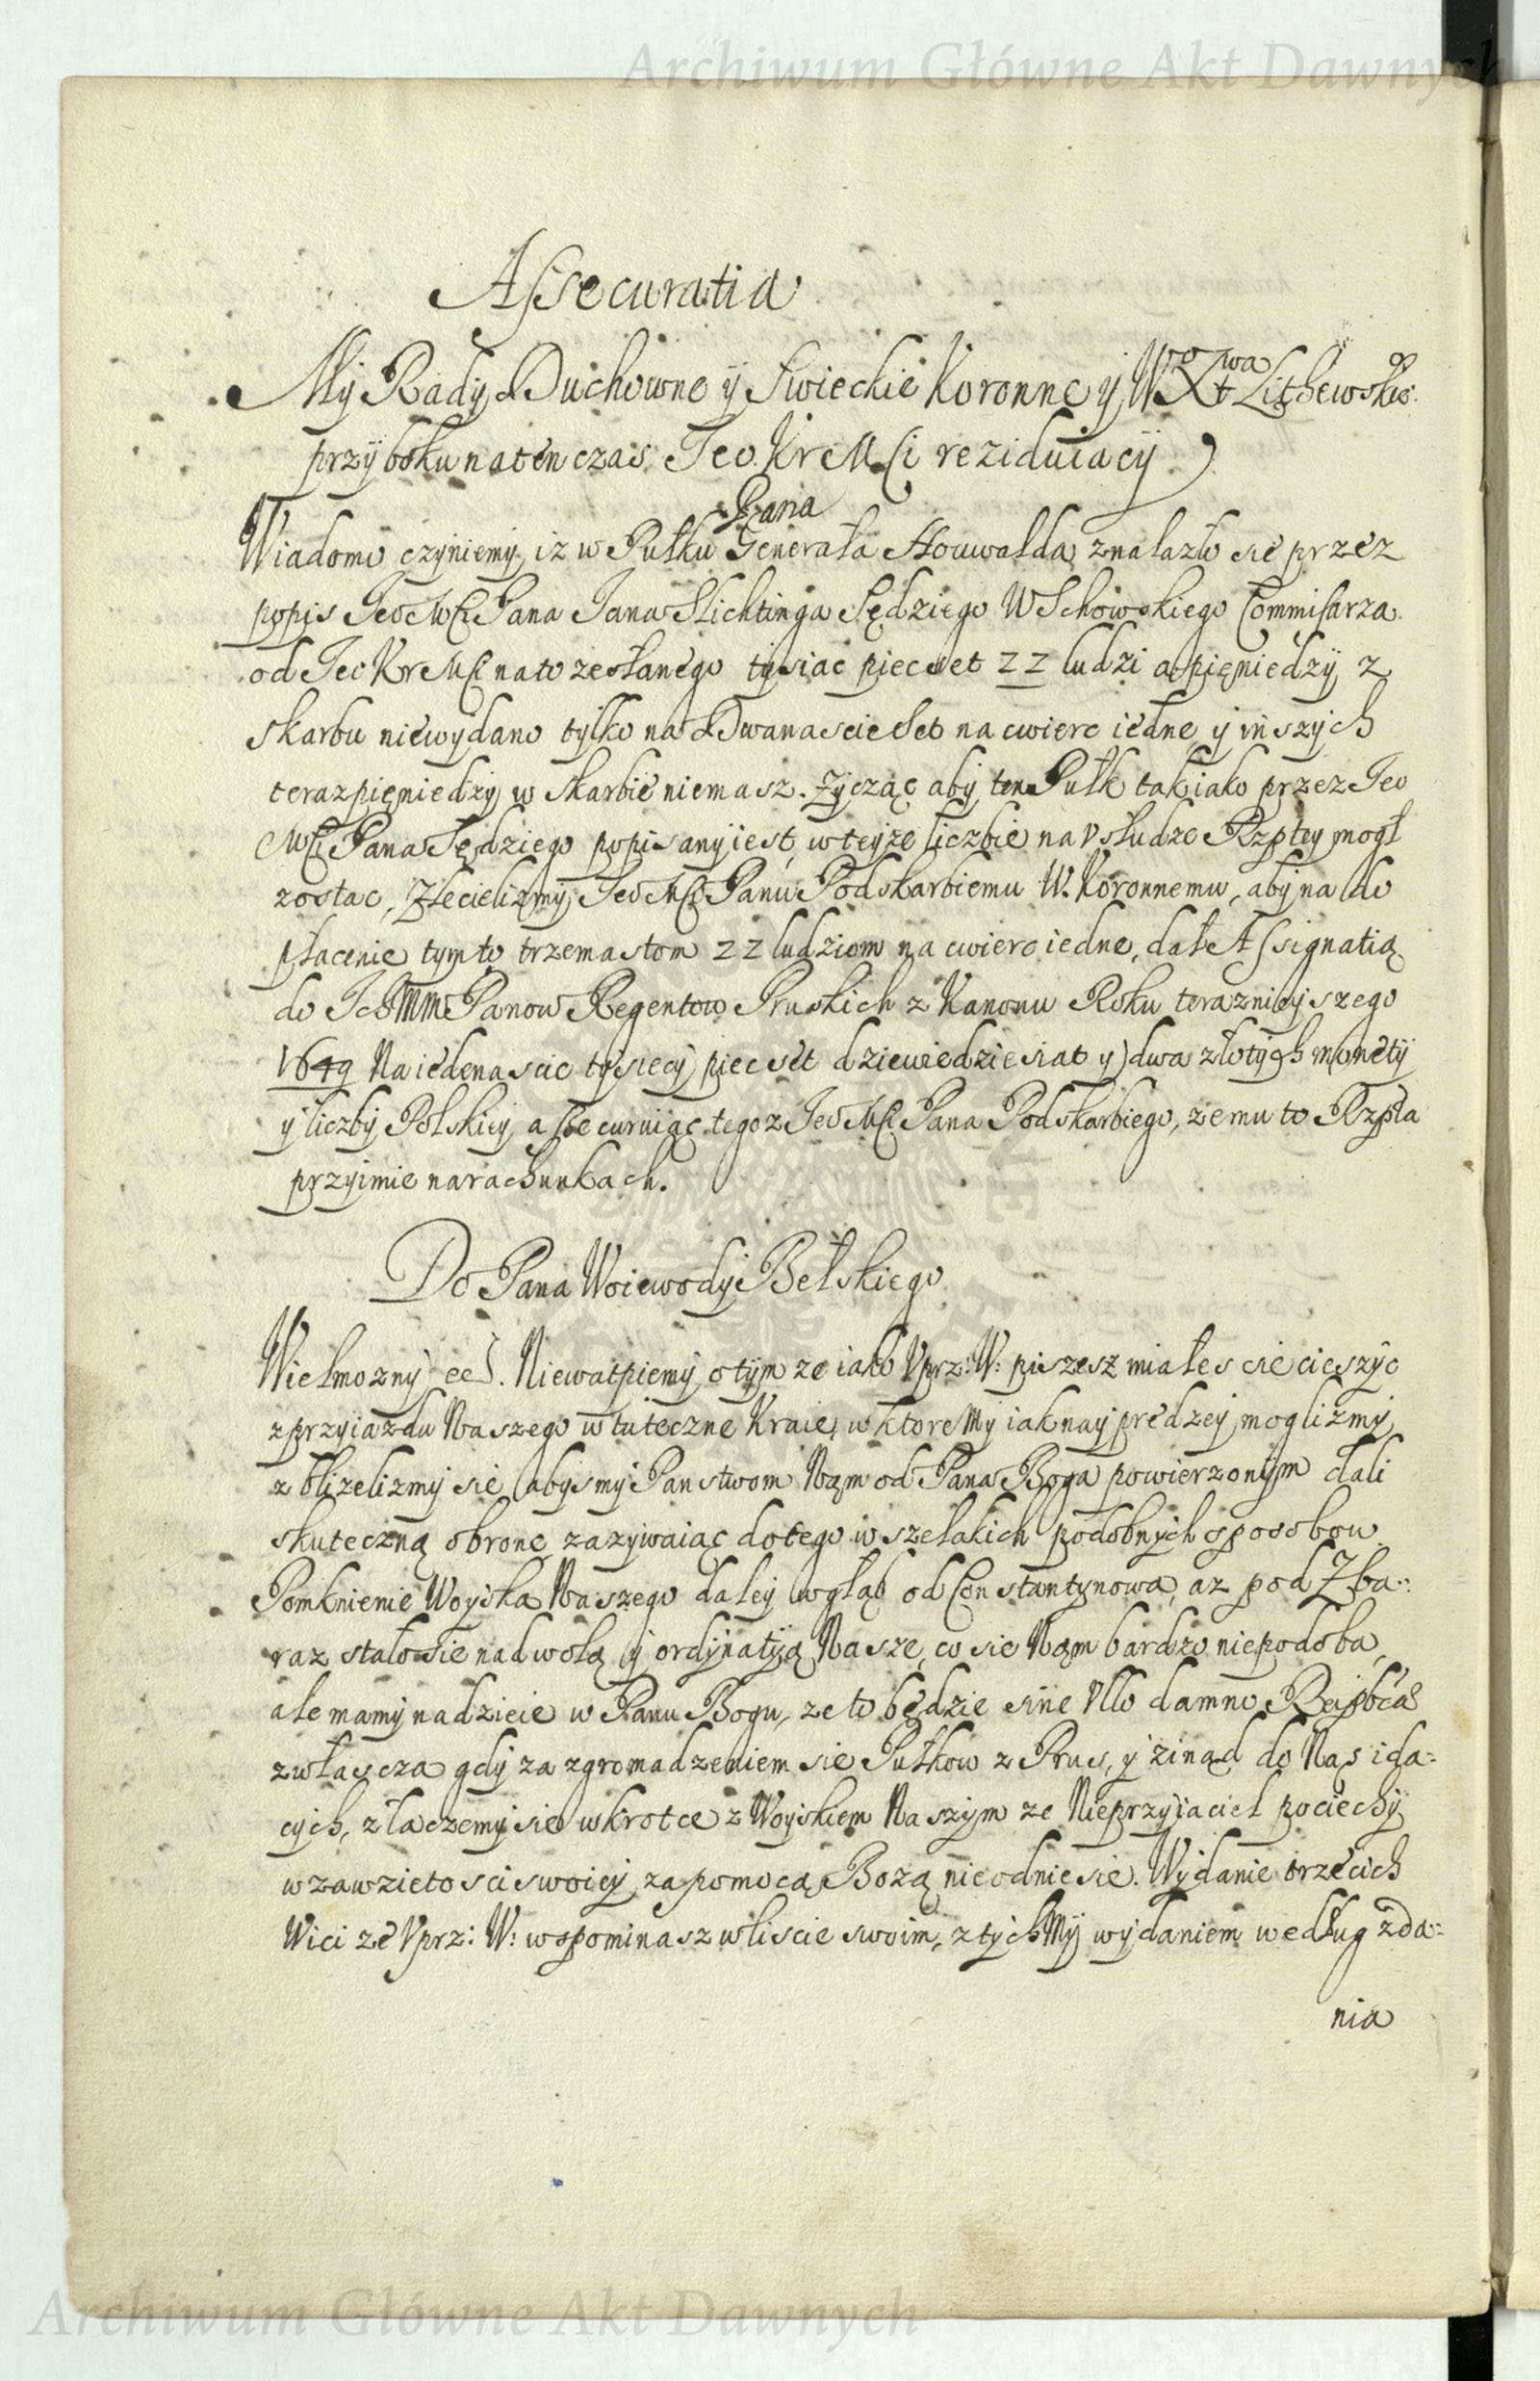 Archiwum Główne Akt Dawnych
Assecuratia
My Rady Duchowne y Swieckie Koronne y W° Xtwa Lithewskie°:
przy boku naten czas Jeo KreMsci reziduiacy.
Pana
Wiadomo czyniemy, iz w Pułku Generała Houwalda znalazło sie przez
popis JeoMsci Pana Jana Slichtinga Sędziego WSchowskiego Commisarza
od Jeo KreMsci nato zesłanego tysiac piec set 22 ludzi a pięniedzy z
skarbu niewydano tylko na Dwanascie set na cwierc iedne y inszych
teraz pięniedzy w skarbie niemasz. Zycząc aby ten Pułk tak iako przez Jeo
Msci Pana Sędziego popisany iest, w teyze liczbie na Vsłudze Rzptey mogł
zostac, Zlecielizmy JeoMsci Panu Podskarbiemu W. Koronnemu, aby na do
płacenie tymto trzemastom 22 ludziom na cwierc iedne, dał Assignatią
do IchMM Panow Regentow Pruskich z Kanonu Roku teraznieyszego
1649 Na iedenascie tysiecy piec set dziewiedziesiat y dwa złotych monety
y liczby Polskiey assecuruiąc tegoz JeoMsci Pana Podskarbiego, ze mu to Rzplta
przyimie narachunkach.
Do Pana Woiewody Bełskiego
Wielmozny etc. Niewatpiemy o tym ze iako Vprz: W: piszesz miałes sie cieszyc
z przyiazdu Naszego w tuteczne Kraie, w ktore My iak nayprędzey moglizmy
zblizelizmy sie, abysmy Panstwom Nam od Pana Boga powierzonym dali
skuteczną obronę zazywaiąc do tego wszelakich podobnych sposobow.
Pomknienie Woyska Naszego daley wgłąb od Constantynowa, az pod Zba=
raz stało sie nad wolą y ordynatyą Nasze, co sie Nam bardzo niepodoba,
ale mamy nadzieie w Panu Bogu, ze to będzie sine Vllo damno Reipbcae
zwłaszcza gdy za zgromadzeniem sie Pułkow z Prus, y zinąd do Nas ida=
cych, złaczemy sie wkrotce z Woyskiem Naszym ze Nieprzyiaciel pociechy
w zawzietosci swoiey, za pomocą Bozą nieodniesie. Wydanie trzecich
Wici ze Vprz: W: wspominasz w liscie swoim, z tych My wydaniem według zda=
nia
Archiwum Główne Akt Dawnych